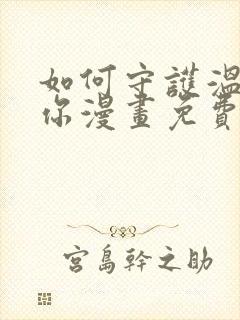 如何守護溫
你漫畫免費
宮島幹之助